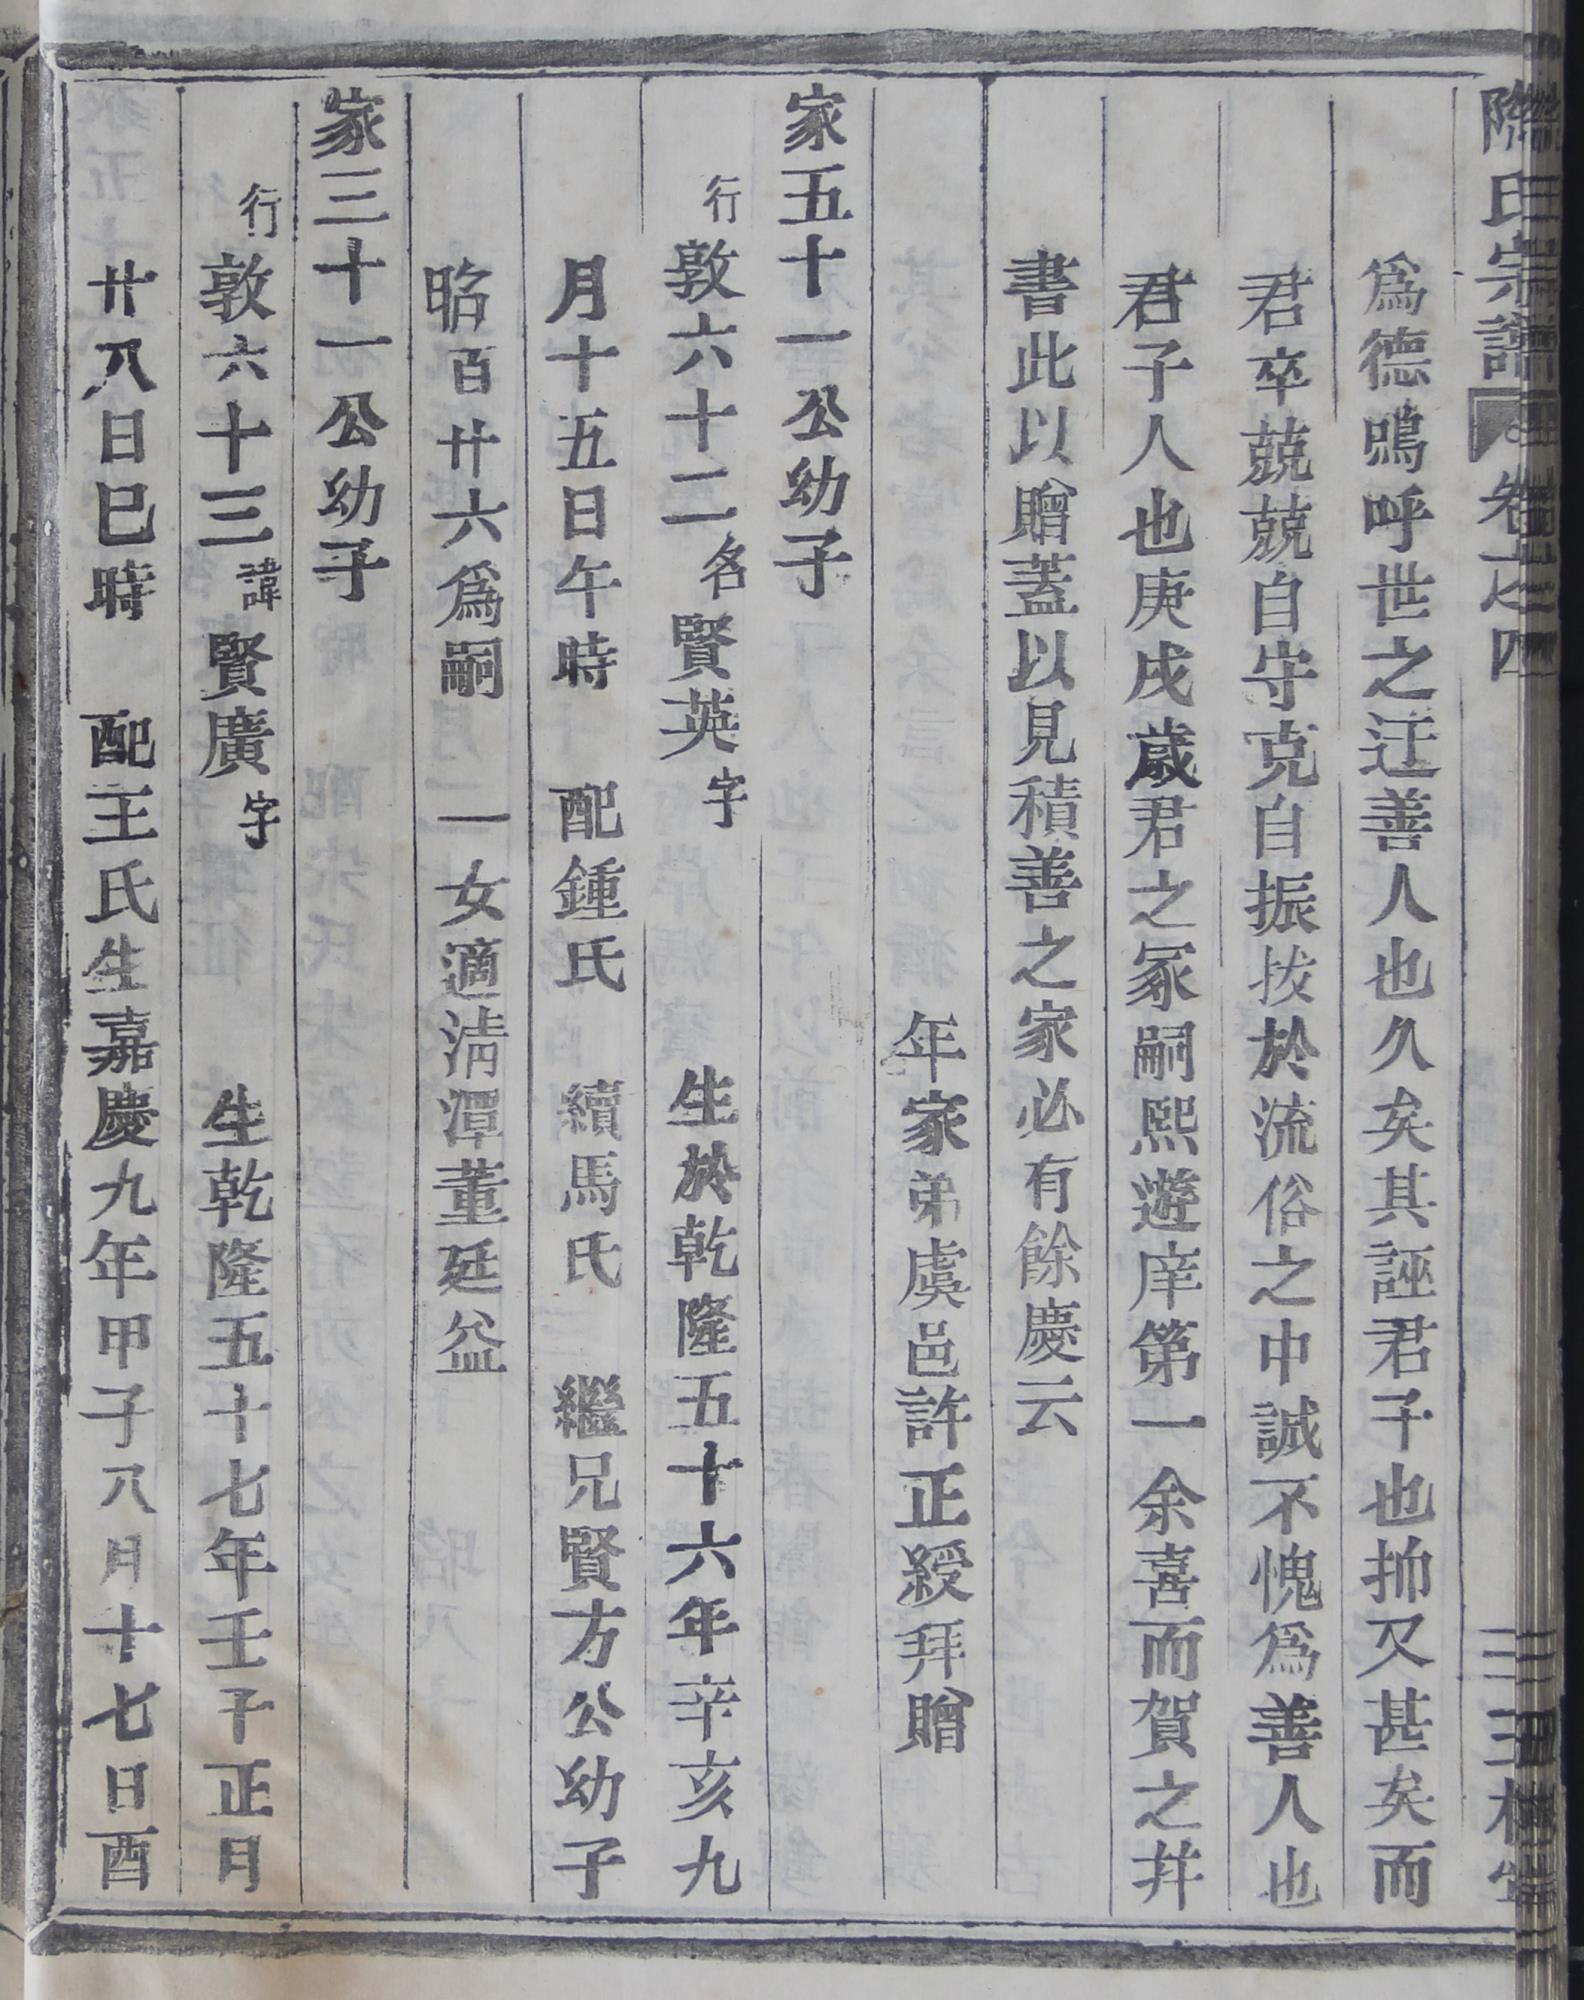 氏宗譜 卷之四
爲德嗚呼世之迂善人也久矣其誣君子也抑又甚矣而
君卒兢兢自守克自振拔於流俗之中誠不愧爲善人也
君子人也庚戌歲君之冢嗣熙遊庠第一余喜而賀之并
書此以贈蓋以見積善之家必有餘慶云
年家弟虞邑許正綬拜贈
家五十一公幼子
行敦六十二名賢英字 生於乾隆五十六年辛亥九
月十五日午時 配鍾氏 續馬氏 繼兄賢方公幼子
昭百廿六爲嗣 一女適淸潭董廷益
家三十一公幼子
行敦六十三諱賢廣字 生乾隆五十七年壬子正月
廿八日巳時 配王氏生嘉慶九年甲子八月十七日酉